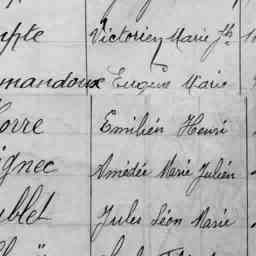 mpte Victorien Marie Jh
mandoux Eugène Marie
orre Emilién Henri
ignec Amédée Marie Julién
blet Jules Léon Marie